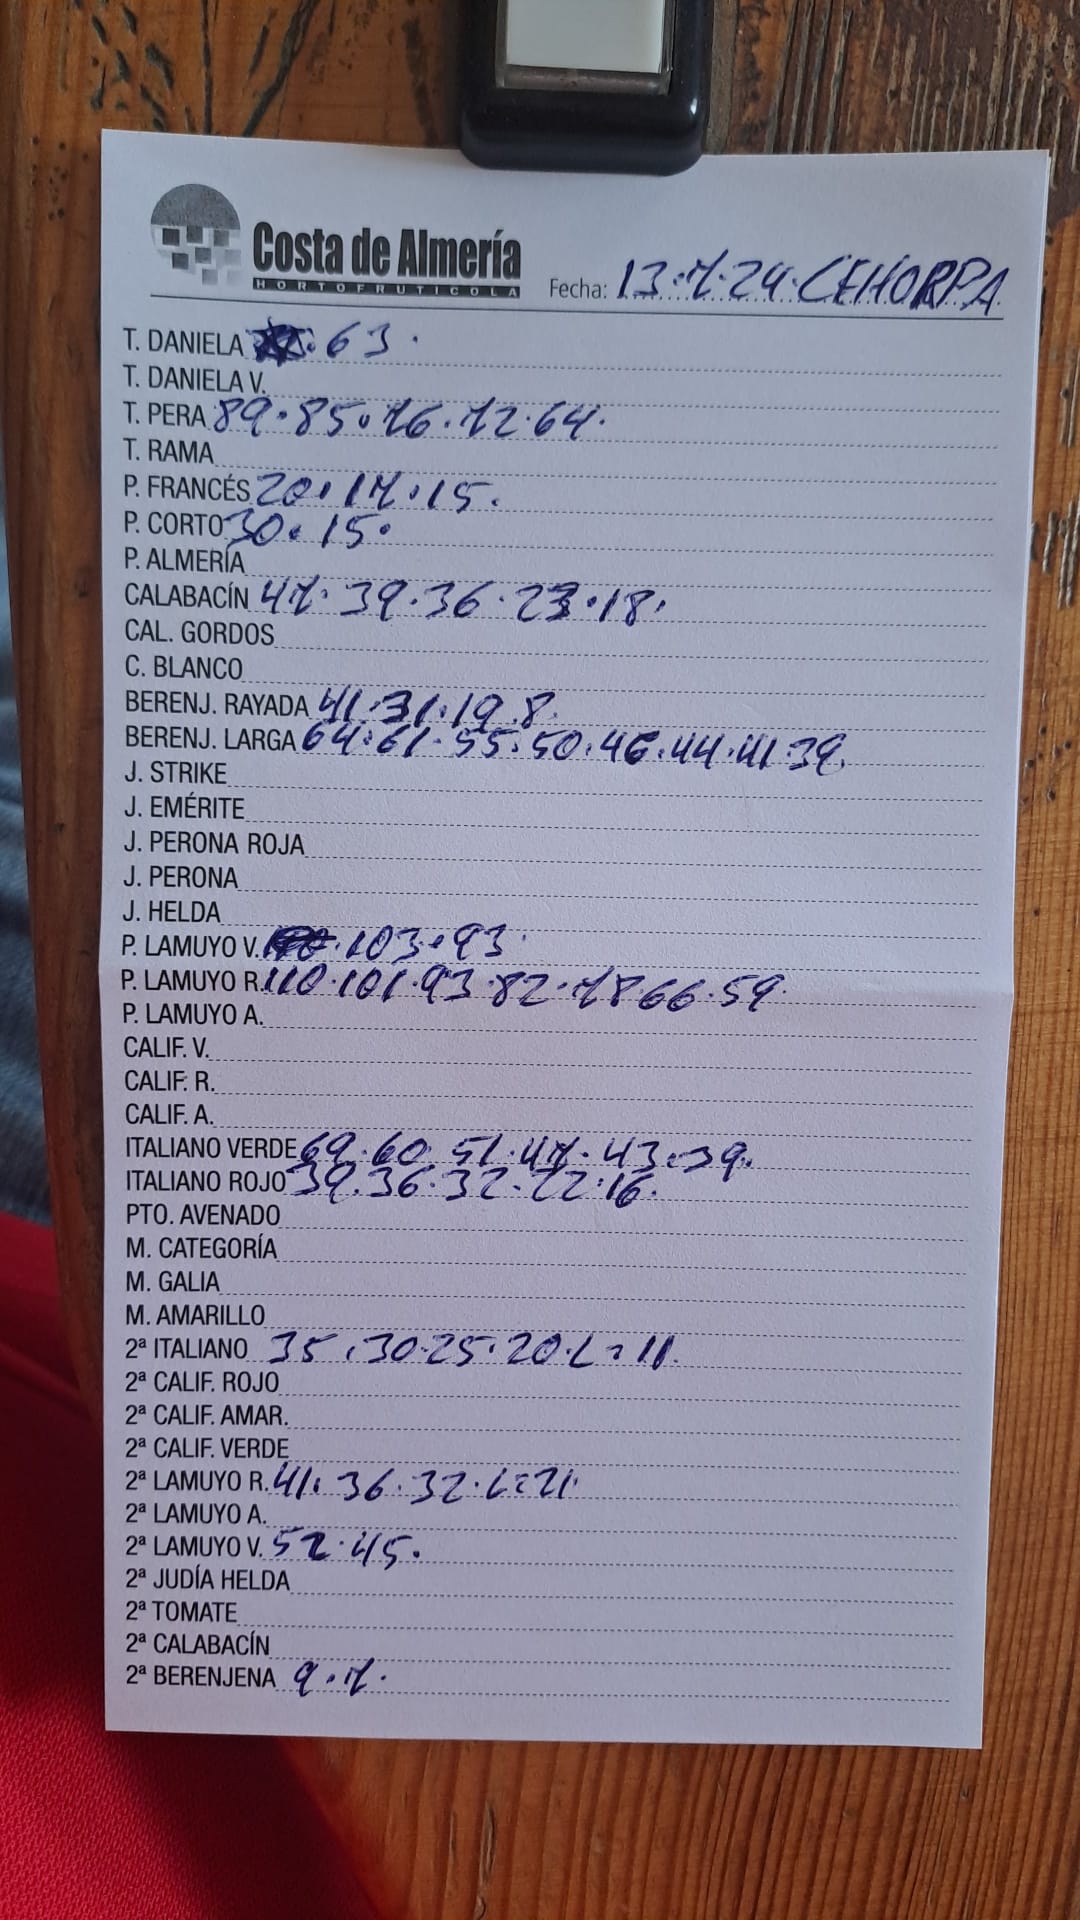 Costa de Almería
HORTOFRUTICOLA
Fecha: 13.7.24.CEHORPA
T. DANIELA .63.
T. DANIELA V.
T. PERA 89.85.76.72.64.
T. RAMA
P. FRANCÉS 20.17.15.
P. CORTO 30.15.
P. ALMERÍA
CALABACÍN 47.39.36.23.18.
CAL. GORDOS
C. BLANCO
BERENJ. RAYADA 41.31.19.8.
BERENJ. LARGA 64.61.55.50.46.44.41.39.
J. STRIKE
J. EMÉRITE
J. PERONA ROJA
J. PERONA
J. HELDA
P. LAMUYO V. .103.93.
P. LAMUYO R. 110.101.93.82.78.66.59.
P. LAMUYO A.
CALIF. V.
CALIF. R.
CALIF. A.
ITALIANO VERDE 69.60.51.47.43.39.
ITALIANO ROJO 39.36.32.22.16.
PTO. AVENADO
M. CATEGORÍA
M. GALIA
M. AMARILLO
2ª ITALIANO 35.30.25.20.L=11.
2ª CALIF. ROJO
2ª CALIF. AMAR.
2ª CALIF. VERDE
2ª LAMUYO R. 41.36.32.L=21.
2ª LAMUYO A.
2ª LAMUYO V. 52.45.
2ª JUDÍA HELDA
2ª TOMATE
2ª CALABACÍN
2ª BERENJENA 9.7.